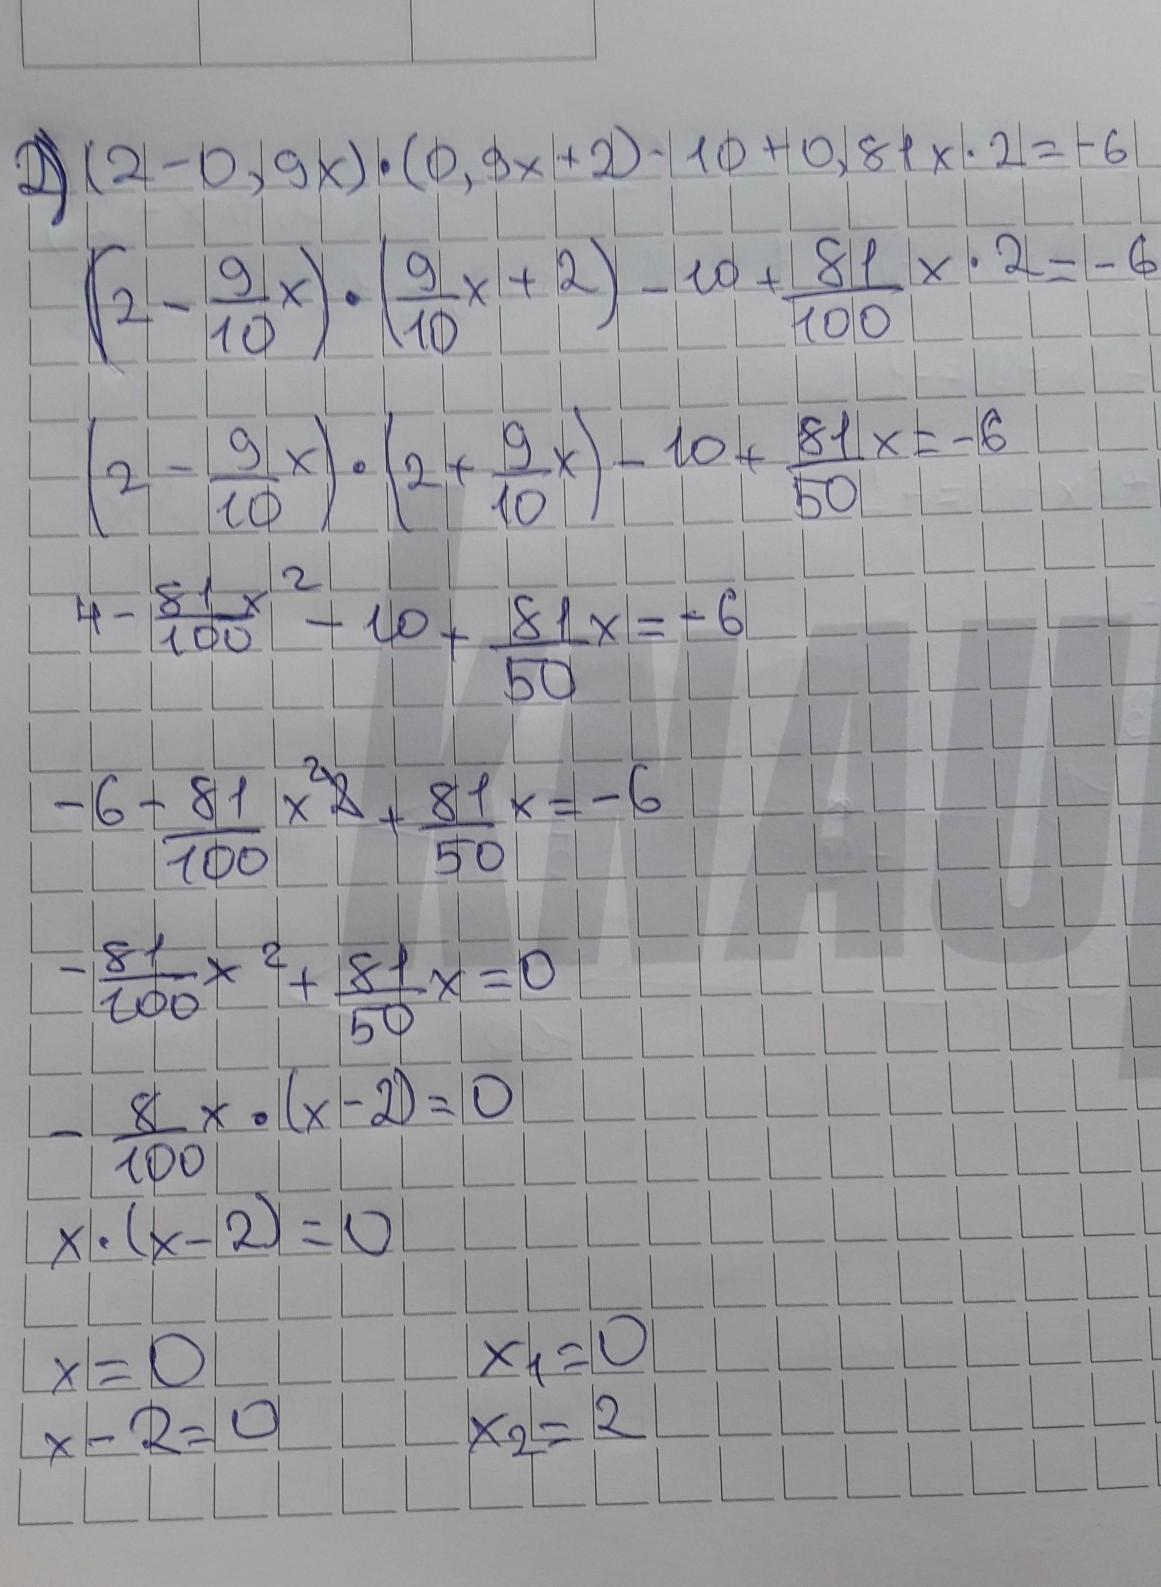 2) (2-0,9x)·(0,9x+2)-10+0,81x·2=-6
(2 - 9/10 x)·(9/10 x + 2) - 10 + 81/100 x·2 = -6
(2 - 9/10 x)·(2 + 9/10 x) - 10 + 81/50 x = -6
4 - 81/100 x² - 10 + 81/50 x = -6
-6 - 81/100 x² + 81/50 x = -6
- 81/100 x² + 81/50 x = 0
- 8/100 x·(x-2) = 0
x·(x-2) = 0
x = 0 x₁ = 0
x - 2 = 0 x₂ = 2
KNAU